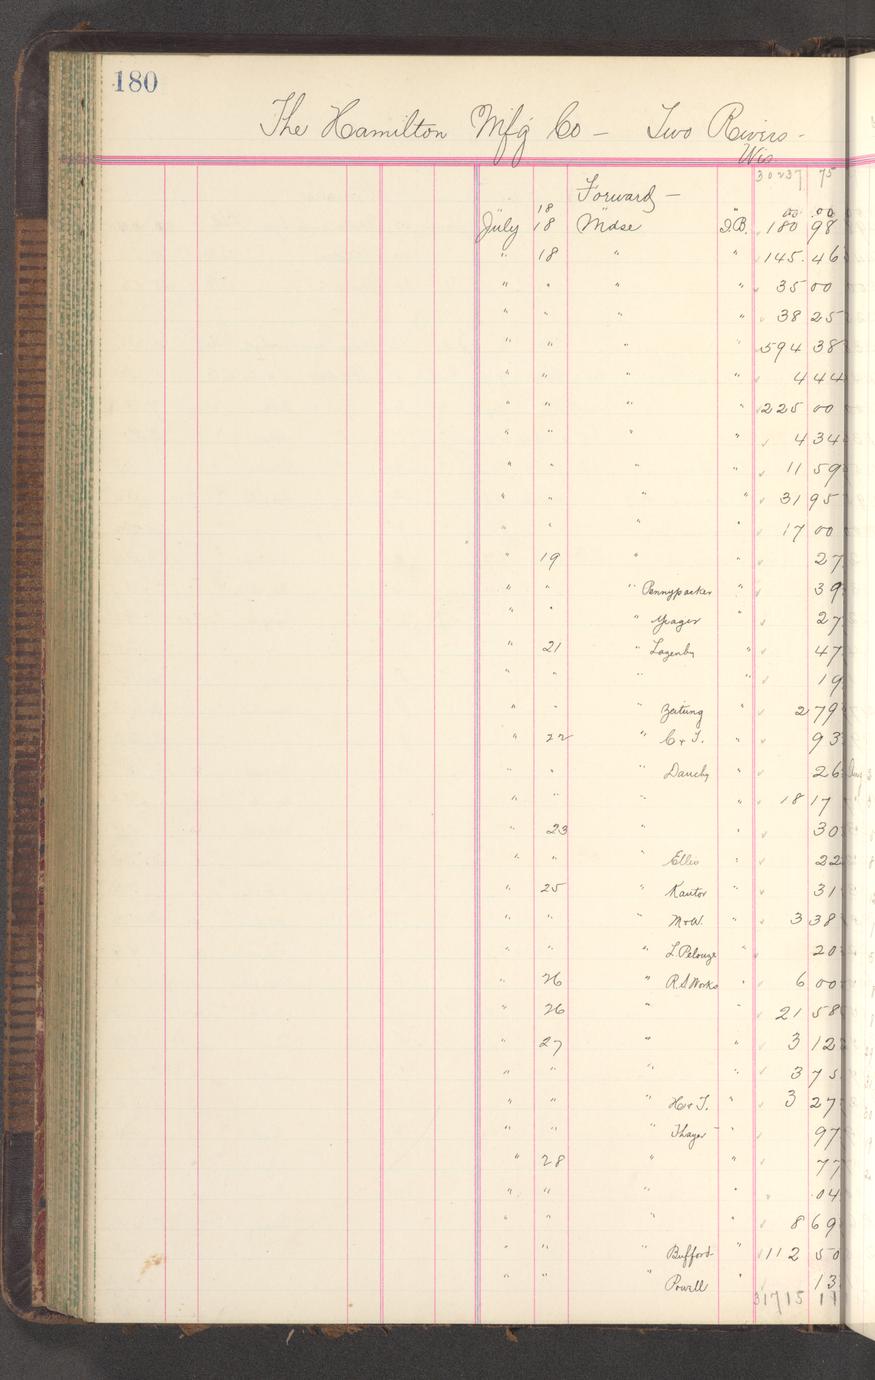 180
The Hamilton Mfg Co — Two Rivers -
Wis
30237 75
Forward —
" 18 " " 00 00
July 18 Mdse D.B. 180 98
" 18 " " 145. 46
" " " " 35 00
" " " " 38 25
" " " " 594 38
" " " " 4 44
" " " " 225 00
" " " " 4 34
" " " " 11 59
" " " " 31 95
" " " " 17 00
" 19 " " 27
" " " Pennypacker " 39
" " " Yeager " 27
" 21 " Lazenby " 47
" " " " 19
" " " Zeitung " 2 79
" 22 " C & T. " 93
" " " Danchy " 26
" " " " 18 17
" 23 " " 30
" " " Ellis " 22
" 25 " Kantor " 31
" " " M & W. " 3 38
" " " L. Pelouze " 20
" 26 " R.S Works " 6 00
" 26 " " 21 58
" 27 " " 3 12
" " " " 3 75
" " " H & T. " 3 27
" " " Thayer " 97
" 28 " " 77
" " " " .04
" " " " 8 69
" " " Bufford " 112 50
" " " Powell " 13
31715 11